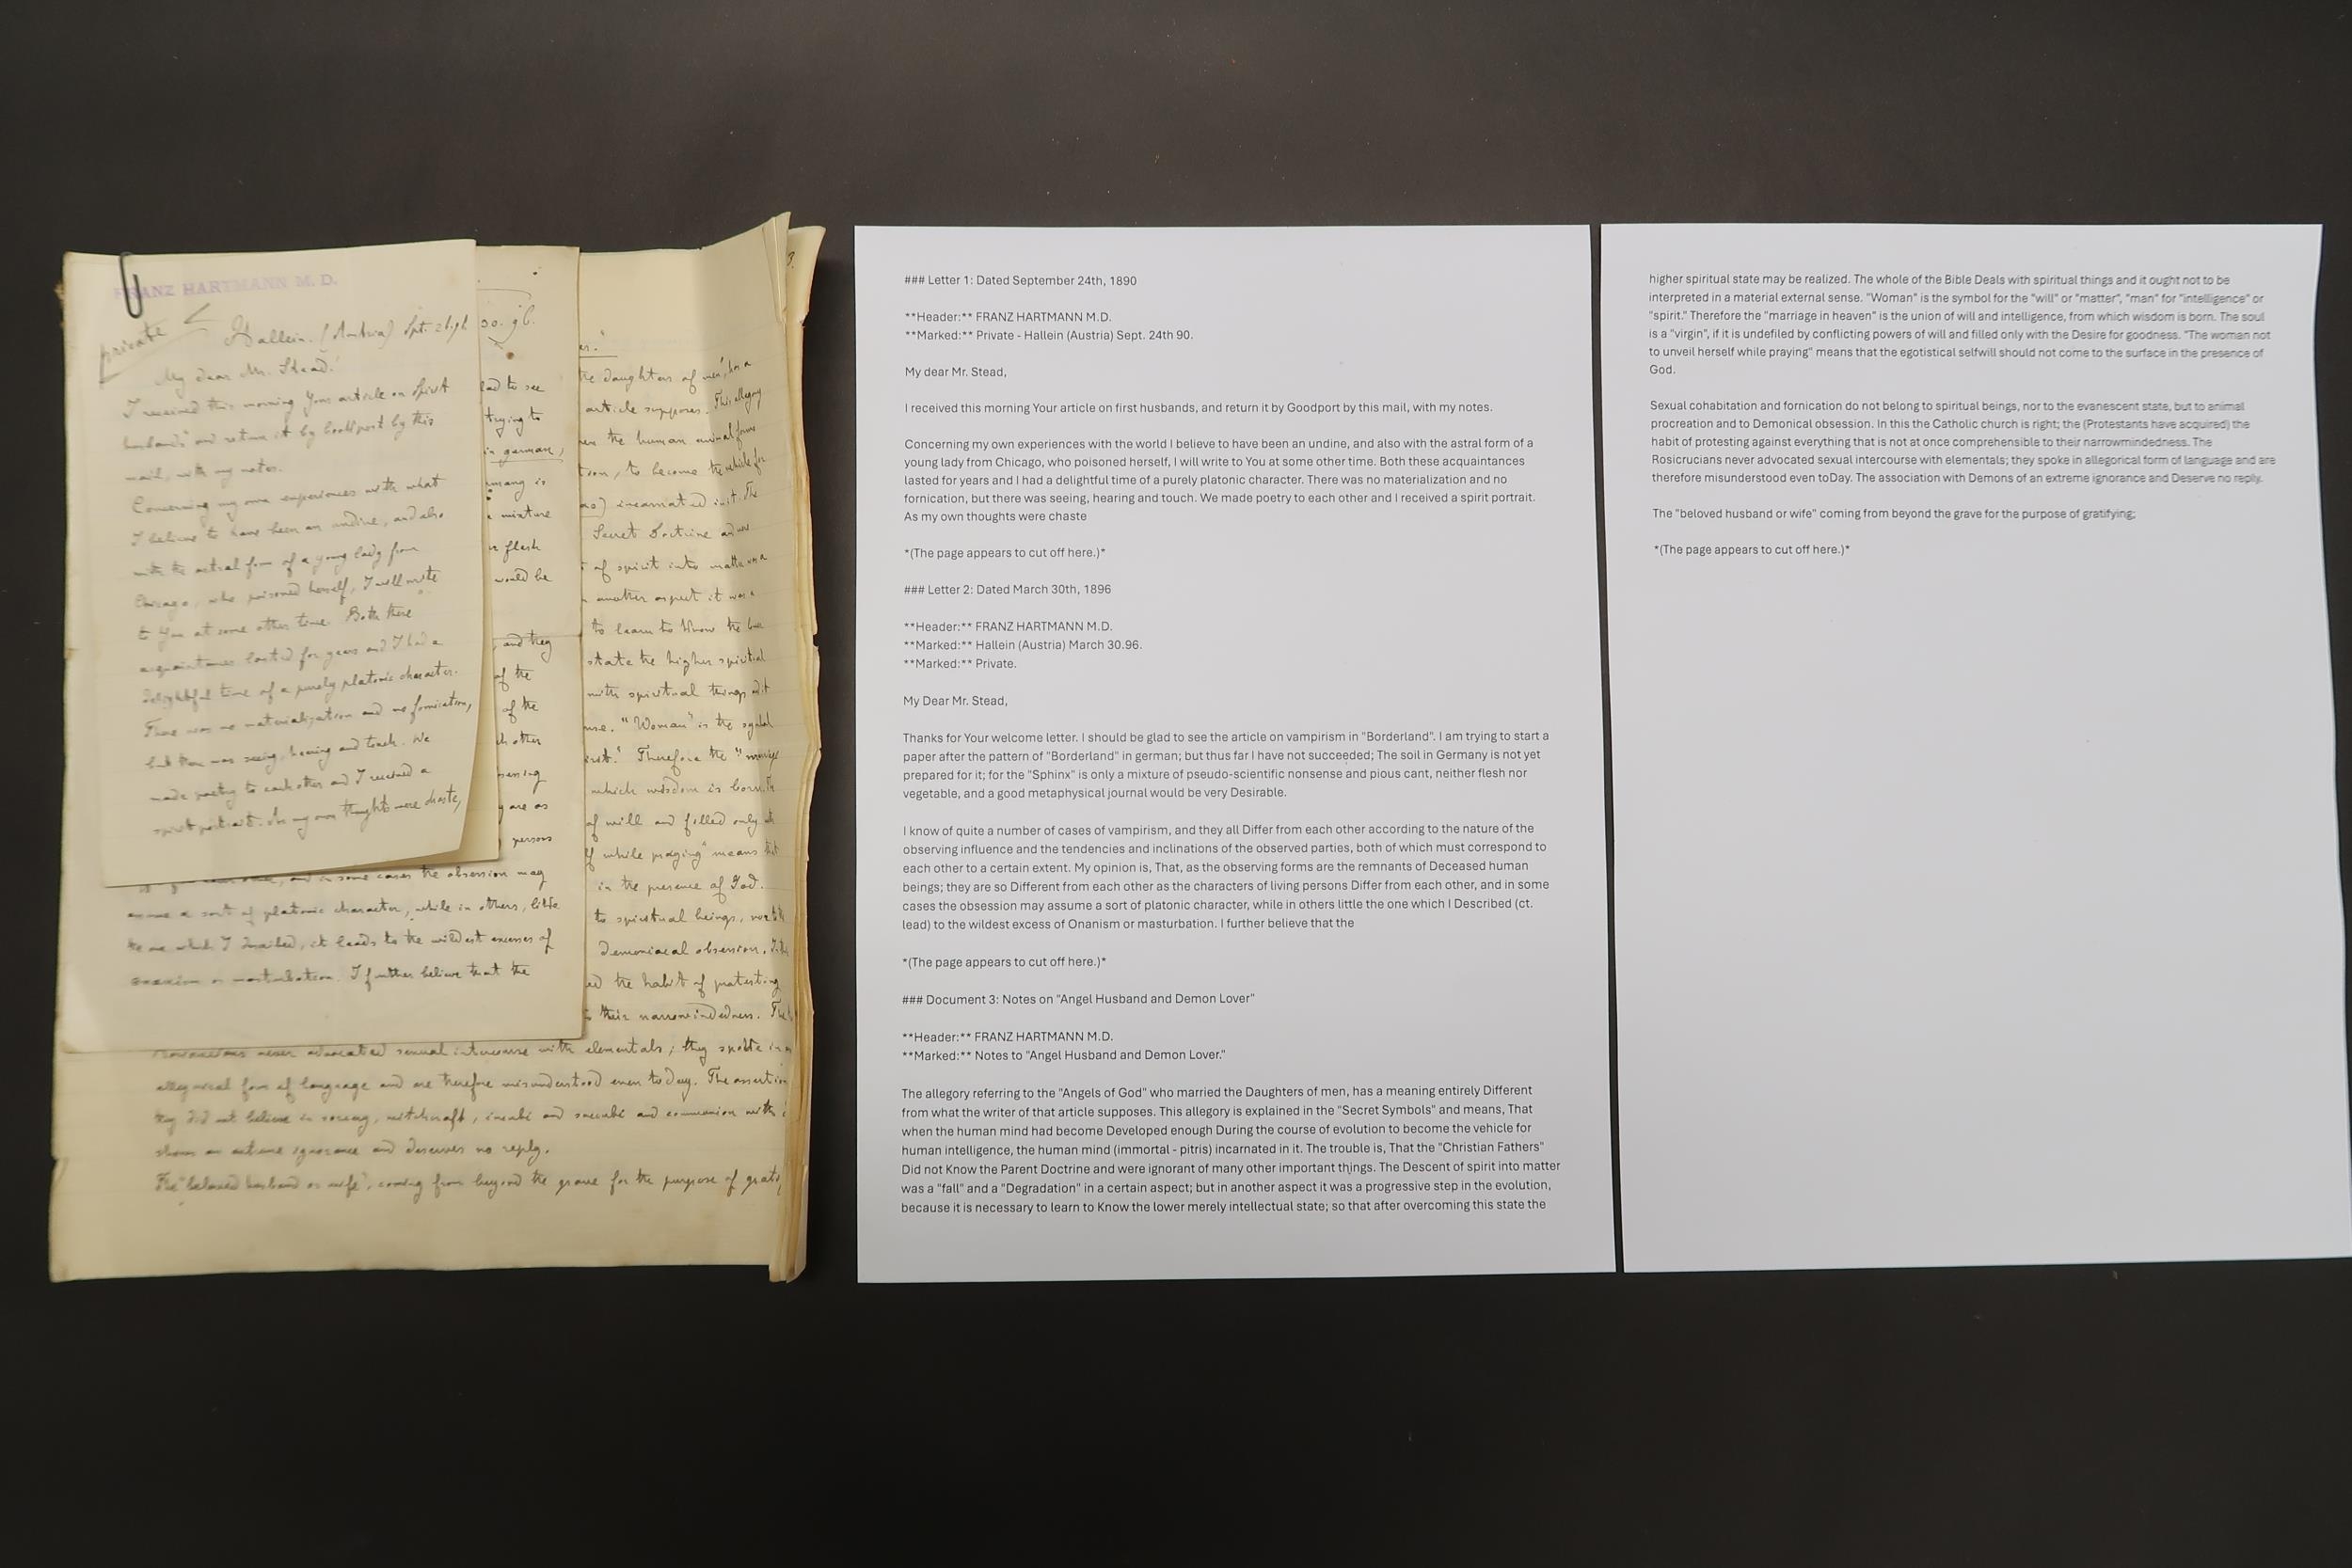 FRANZ HARTMANN M. D.
private
Hallein. (Austria) Spt. 24.96
My dear Mr. Stead!
I received this morning Your article on Spirit
husbands" and return it by bookpost by this
mail, with my notes.
Concerning my own experiences with what
I believe to have been an undine, and also
with the astral form of a young lady from
Chicago, who poisoned herself, I will write
to You at some other time. Both these
acquaintances lasted for years and I had a
delightful time of a purely platonic character.
There was no materialization and no fornication,
but there was seeing, hearing and touch. We
made poetry to each other and I received a
spirit portrait. As my own thoughts were chaste,
30. 96.
lad to see
trying to
in german,
mixture
flesh
would be
and they
of the
of the
ch other
are as
persons
in some cases the obsession may
assume a sort of platonic character, while in others, like
the one which I described, it leads to the wildest excesses of
onanism or masturbation. I further believe that the
3.
er."
the daughters of men", has a
article supposes. This allegory
the human animal form
to become the vehicle for
incarnated in it. The
Secret Doctrine and were
of spirit into matter was a
another aspect it was a
to learn to know the low
state the higher spiritual
with spiritual things and it
"Woman" is the symbol
Therefore the "marriage
which wisdom is born. The
of will and filled only with
while praying" means that
in the presence of God.
to spiritual beings, nor
demoniacal obsession.
the habit of protesting
their narrowmindedness. The
Rosicrucians never advocated sexual intercourse with elementals; they spoke in
allegorical form of language and are therefore misunderstood even to day. The assertion
they did not believe in sorcery, witchcraft, incubi and succubi and communion with
shows an extreme ignorance and deserves no reply.
The "beloved husband or wife", coming from beyond the grave for the purpose of grati
### Letter 1: Dated September 24th, 1890
**Header:** FRANZ HARTMANN M.D.
**Marked:** Private - Hallein (Austria) Sept. 24th 90.
My dear Mr. Stead,
I received this morning Your article on first husbands, and return it by Goodport by this mail, with my notes.
Concerning my own experiences with the world I believe to have been an undine, and also with the astral form of a
young lady from Chicago, who poisoned herself, I will write to You at some other time. Both these acquaintances
lasted for years and I had a delightful time of a purely platonic character. There was no materialization and no
fornication, but there was seeing, hearing and touch. We made poetry to each other and I received a spirit portrait.
As my own thoughts were chaste
*(The page appears to cut off here.)*
### Letter 2: Dated March 30th, 1896
**Header:** FRANZ HARTMANN M.D.
**Marked:** Hallein (Austria) March 30.96.
**Marked:** Private.
My Dear Mr. Stead,
Thanks for Your welcome letter. I should be glad to see the article on vampirism in "Borderland". I am trying to start a
paper after the pattern of "Borderland" in german; but thus far I have not succeeded; The soil in Germany is not yet
prepared for it; for the "Sphinx" is only a mixture of pseudo-scientific nonsense and pious cant, neither flesh nor
vegetable, and a good metaphysical journal would be very Desirable.
I know of quite a number of cases of vampirism, and they all Differ from each other according to the nature of the
observing influence and the tendencies and inclinations of the observed parties, both of which must correspond to
each other to a certain extent. My opinion is, That, as the observing forms are the remnants of Deceased human
beings; they are so Different from each other as the characters of living persons Differ from each other, and in some
cases the obsession may assume a sort of platonic character, while in others little the one which I Described (ct.
lead) to the wildest excess of Onanism or masturbation. I further believe that the
*(The page appears to cut off here.)*
### Document 3: Notes on "Angel Husband and Demon Lover"
**Header:** FRANZ HARTMANN M.D.
**Marked:** Notes to "Angel Husband and Demon Lover."
The allegory referring to the "Angels of God" who married the Daughters of men, has a meaning entirely Different
from what the writer of that article supposes. This allegory is explained in the "Secret Symbols" and means, That
when the human mind had become Developed enough During the course of evolution to become the vehicle for
human intelligence, the human mind (immortal - pitris) incarnated in it. The trouble is, That the "Christian Fathers"
Did not Know the Parent Doctrine and were ignorant of many other important things. The Descent of spirit into matter
was a "fall" and a "Degradation" in a certain aspect; but in another aspect it was a progressive step in the evolution,
because it is necessary to learn to Know the lower merely intellectual state; so that after overcoming this state the
higher spiritual state may be realized. The whole of the Bible Deals with spiritual things and it ought not to be
interpreted in a material external sense. "Woman" is the symbol for the "will" or "matter", "man" for "intelligence" or
"spirit." Therefore the "marriage in heaven" is the union of will and intelligence, from which wisdom is born. The soul
is a "virgin", if it is undefiled by conflicting powers of will and filled only with the Desire for goodness. "The woman not
to unveil herself while praying" means that the egotistical selfwill should not come to the surface in the presence of
God.
Sexual cohabitation and fornication do not belong to spiritual beings, nor to the evanescent state, but to animal
procreation and to Demonical obsession. In this the Catholic church is right; the (Protestants have acquired) the
habit of protesting against everything that is not at once comprehensible to their narrowmindedness. The
Rosicrucians never advocated sexual intercourse with elementals; they spoke in allegorical form of language and are
therefore misunderstood even toDay. The association with Demons of an extreme ignorance and Deserve no reply.
The "beloved husband or wife" coming from beyond the grave for the purpose of gratifying;
*(The page appears to cut off here.)*